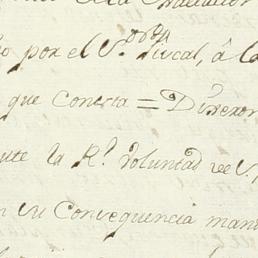 por el S.or Fiscal, á la
que conexta = Dixeron
la R.l voluntad de S.
en su Consequencia man